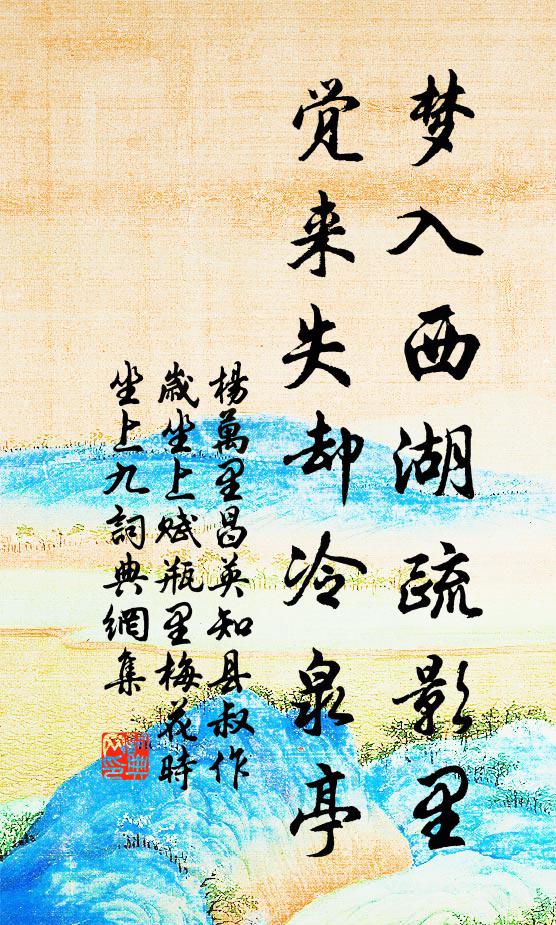 梦入西湖疏影里
觉来失却冷泉亭
楊萬里昌英知县叔作
歲坐上赋瓶里梅花時
坐上九詞典網集